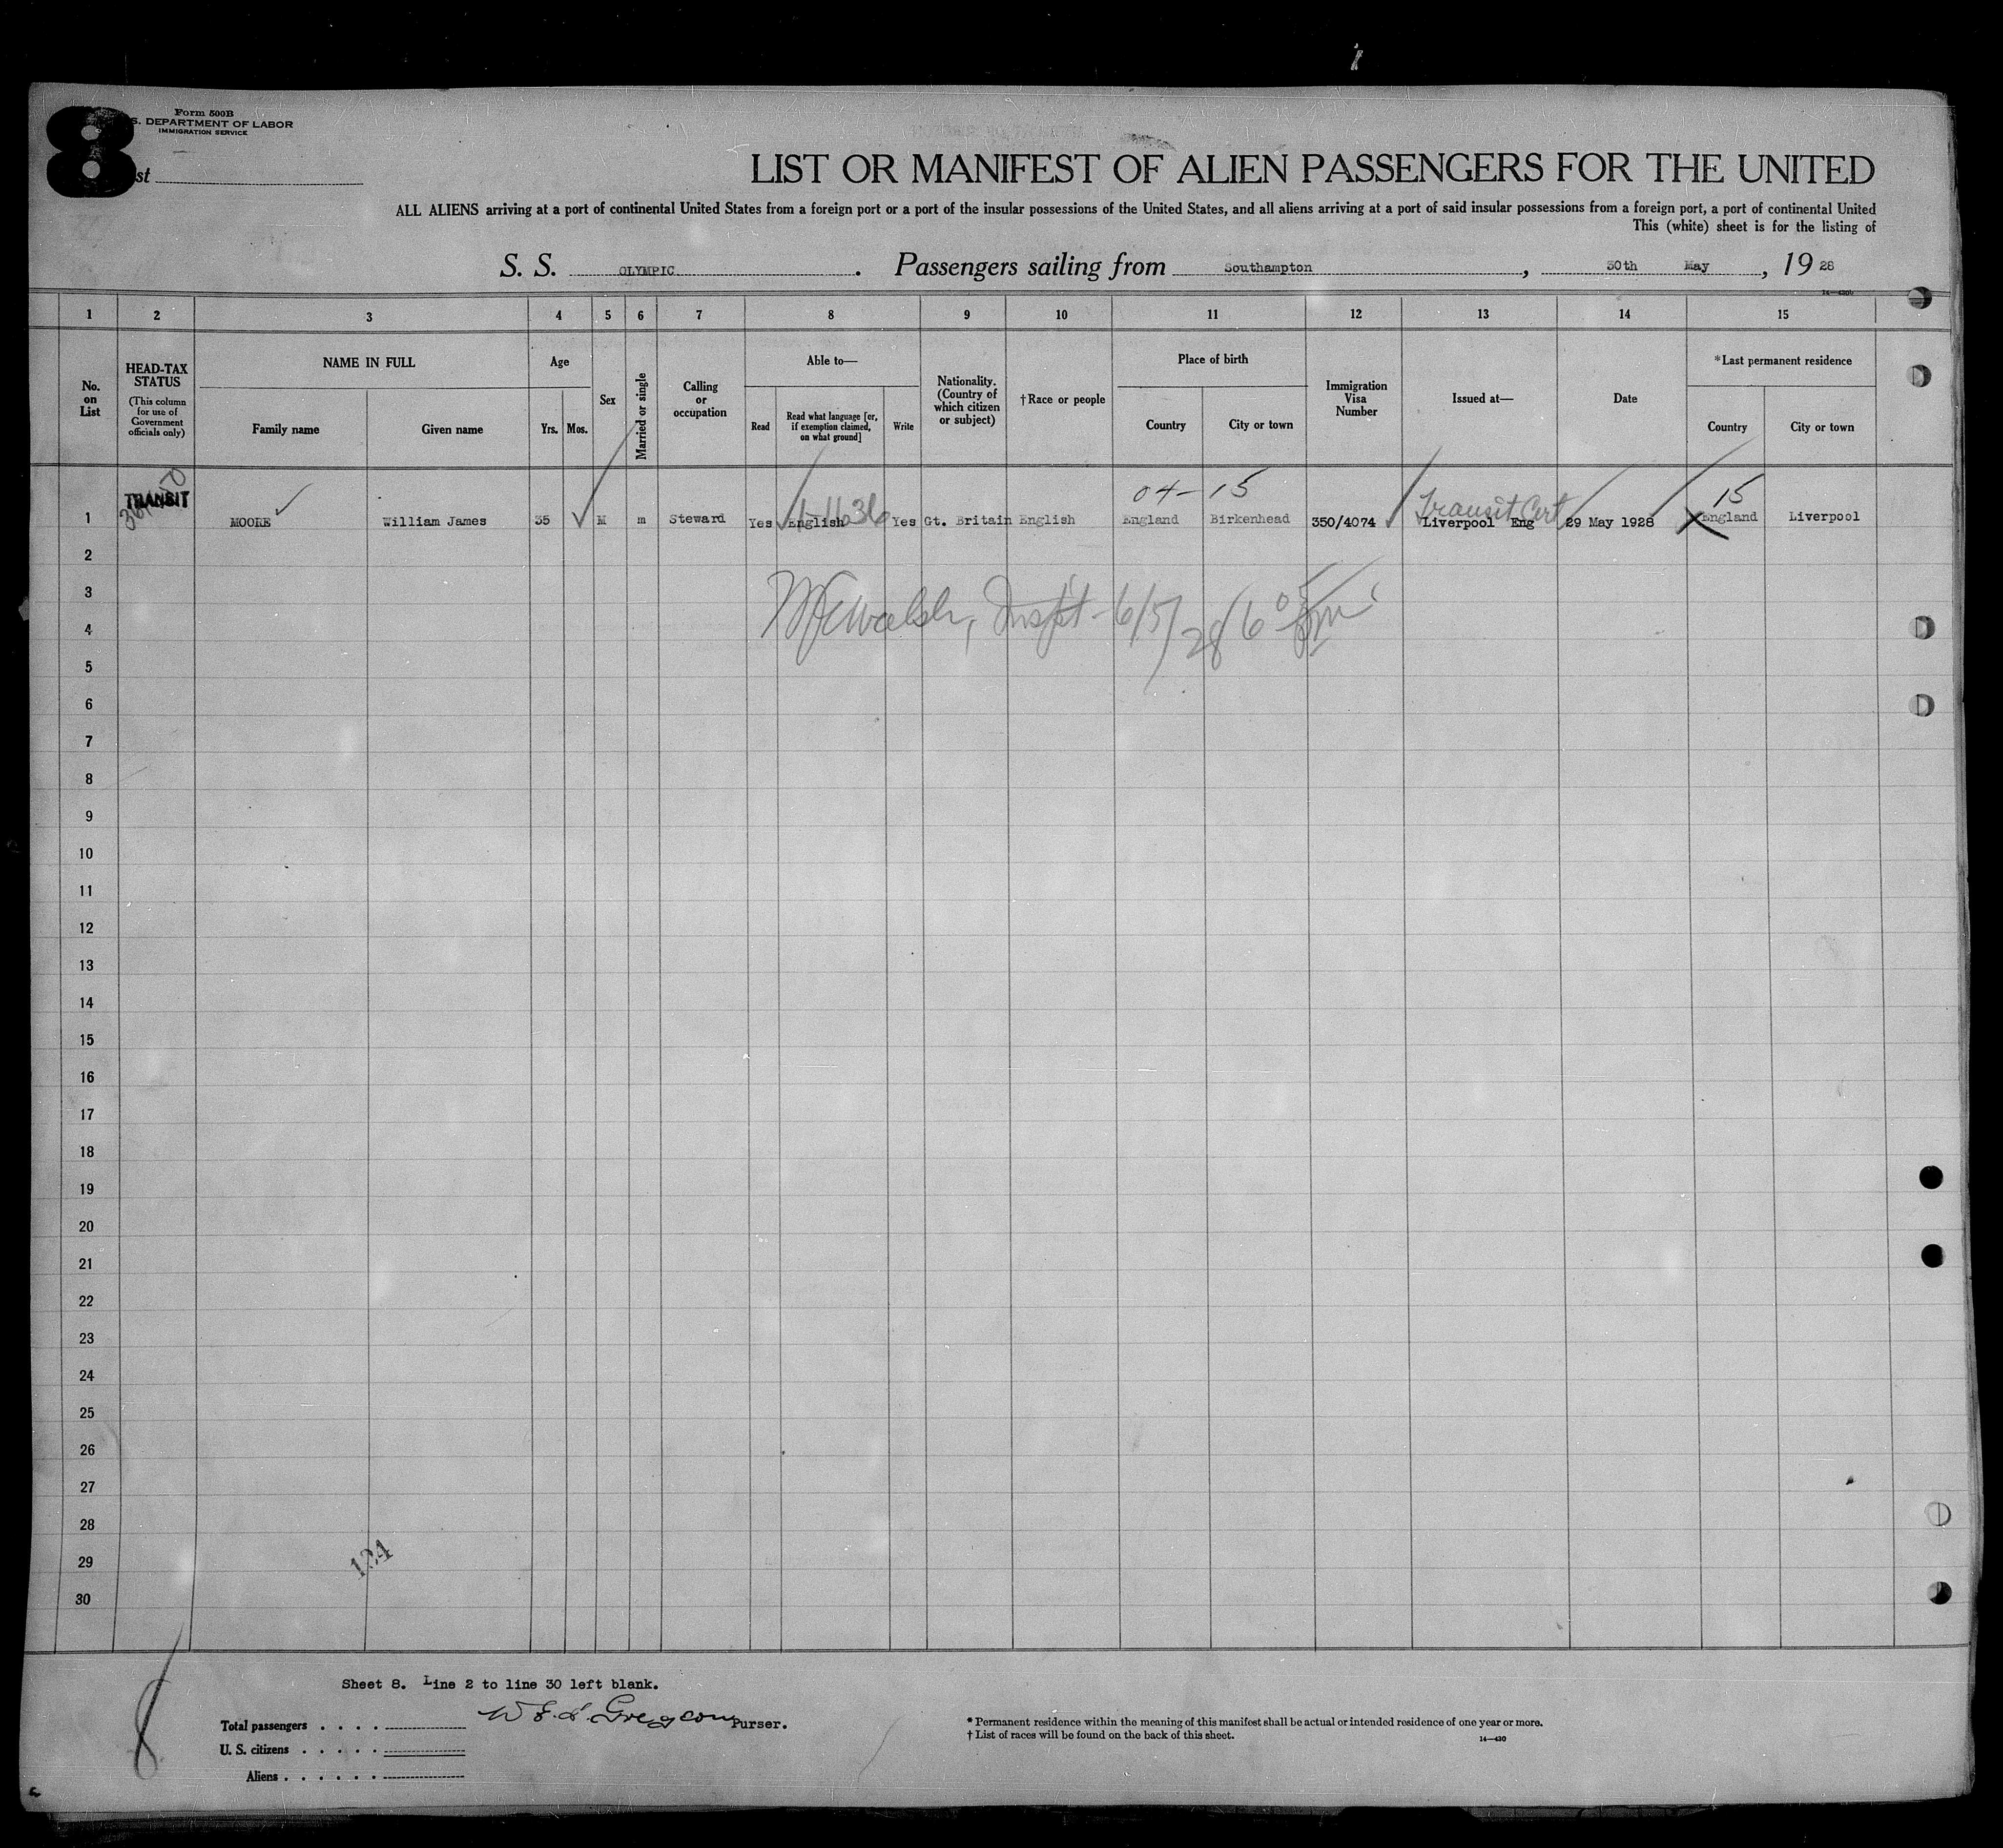 8
Form 500B
S. DEPARTMENT OF LABOR
IMMIGRATION SERVICE
st
LIST OR MANIFEST OF ALIEN PASSENGERS FOR THE UNITED
ALL ALIENS arriving at a port of continental United States from a foreign port or a port of the insular possessions of the United States, and all aliens arriving at a port of said insular possessions from a foreign port, a port of continental United
This (white) sheet is for the listing of
S. S. OLYMPIC . Passengers sailing from Southampton , 30th May , 19 28
1 2 3 4 5 6 7 8 9 10 11 12 13 14 15
No. on List
HEAD-TAX STATUS (This column for use of Government officials only)
NAME IN FULL
Family name Given name
Age
Yrs. Mos.
Sex
Married or single
Calling or occupation
Able to—
Read Read what language [or, if exemption claimed, on what ground] Write
Nationality. (Country of which citizen or subject)
†Race or people
Place of birth
Country City or town
Immigration Visa Number
Issued at—
Date
*Last permanent residence
Country City or town
04-15 15
TRANSIT Transit Cert
1 MOORE William James 35 M m Steward Yes English Yes Gt. Britain English England Birkenhead 350/4074 Liverpool Eng 29 May 1928 England Liverpool
2
3
Walsh, Inspt - 6/5/28
4
5
6
7
8
9
10
11
12
13
14
15
16
17
18
19
20
21
22
23
24
25
26
27
28
29
124
30
Sheet 8. Line 2 to line 30 left blank.
Purser.
Total passengers . . . .
U. S. citizens . . . . .
Aliens . . . . . .
8
* Permanent residence within the meaning of this manifest shall be actual or intended residence of one year or more.
† List of races will be found on the back of this sheet.
14—430